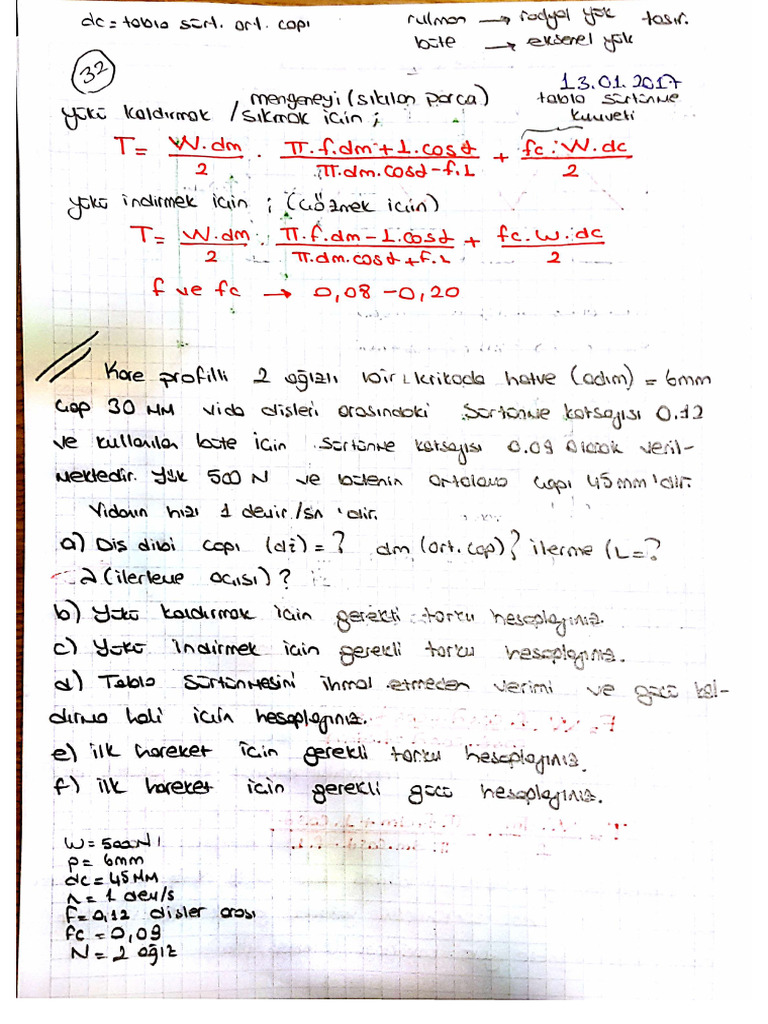 dc = tabla sürt. ort. çapı
rulman → radyal yük taşır.
bilte → eksenel yük
32
13.01.2017
mengeneyi (sıkılan parça)
tabla sürtünme kuvveti
yükü kaldırmak / sıkmak için ;
T = W.dm/2 . π.f.dm + L.cosα / π.dm.cosα - f.L + fc.W.dc/2
yükü indirmek için ; (çözmek için)
T = W.dm/2 . π.f.dm - L.cosα / π.dm.cosα + f.L + fc.W.dc/2
f ve fc → 0,08 - 0,20
Kare profilli 2 ağızlı bir krikoda hatve (adım) = 6mm
çap 30 MM vida dişleri arasındaki sürtünme katsayısı 0.12
ve kullanılan bilte için sürtünme katsayısı 0.09 olarak veril-
mektedir. Yük 500 N ve biltenin ortalama çapı 45 mm'dir.
Vidanın hızı 1 devir/sn 'dir.
a) Diş dibi çapı (di) = ? dm (ort. çap)? ilerme (L = ?
λ (ilerleme açısı) ?
b) Yükü kaldırmak için gerekli torku hesaplayınız.
c) Yükü indirmek için gerekli torku hesaplayınız.
d) Tabla sürtünmesini ihmal etmeden verimi ve gücü kal-
dırma hali için hesaplayınız.
e) ilk hareket için gerekli torku hesaplayınız.
f) ilk hareket için gerekli gücü hesaplayınız.
W = 500 N
p = 6mm
dc = 45 MM
n = 1 dev/s
f = 0,12 dişler arası
fc = 0,09
N = 2 ağız